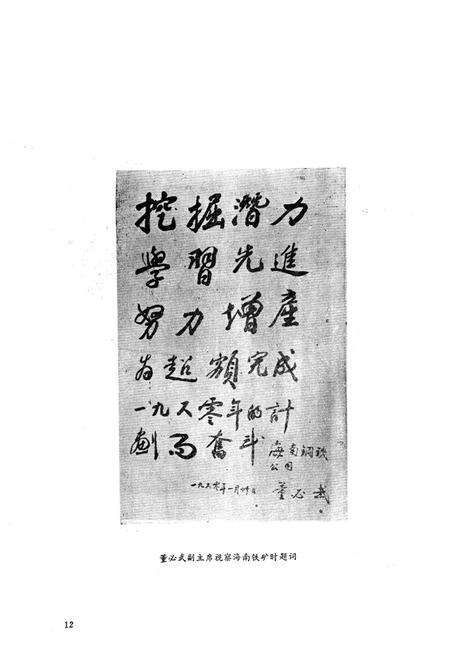 挖掘潛力
學習先進
努力增產
为超額完成
一九六零年的計
劃而奮斗
海南鋼鐵
公司
董必武
一九六零年一月 日
董必武副主席视察海南铁矿时题词
12